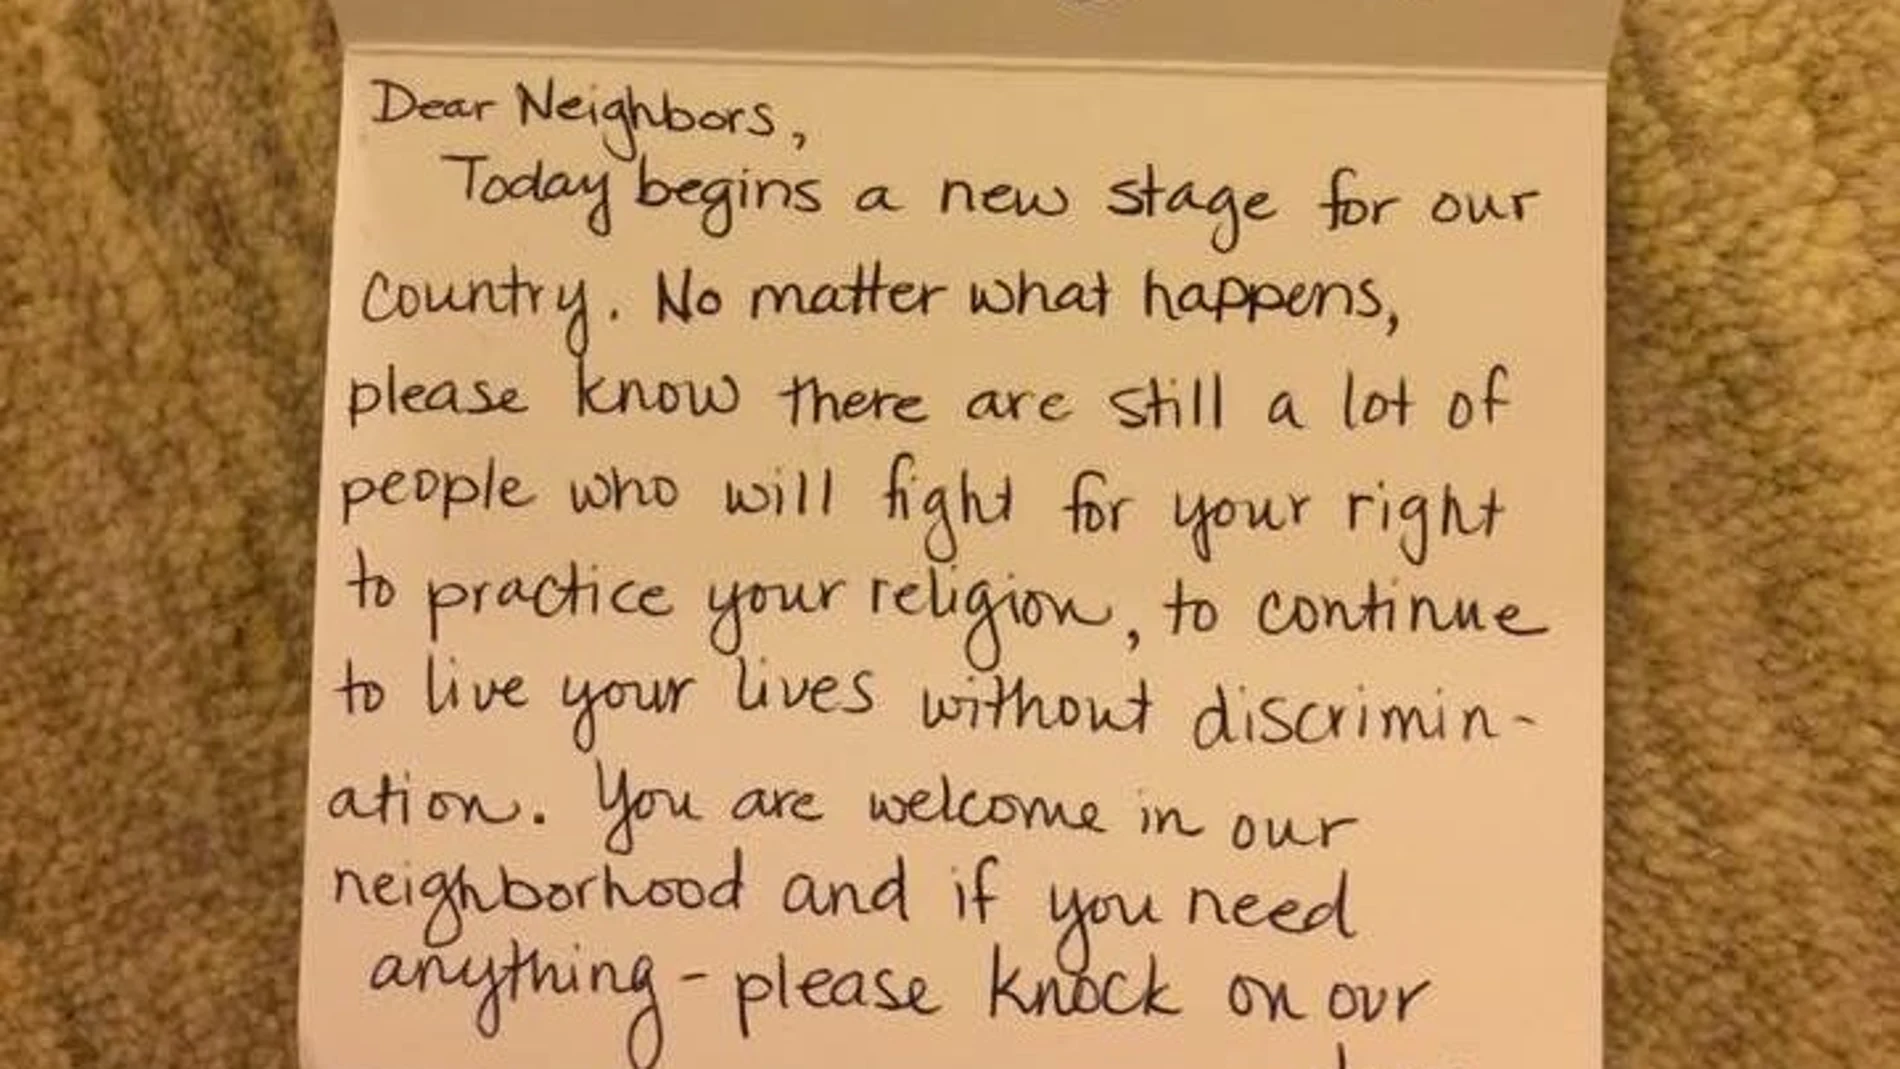 Dear Neighbors,
Today begins a new stage for our
country. No matter what happens,
please know there are still a lot of
people who will fight for your right
to practice your religion, to continue
to live your lives without discrimin-
ation. You are welcome in our
neighborhood and if you need
anything - please knock on our